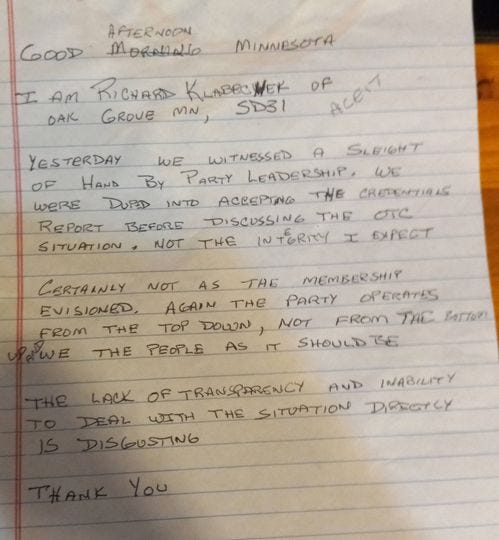 AFTERNOON
GOOD MORNING MINNESOTA
I AM RICHARD KLABECHEK OF
OAK GROVE MN, SD31
YESTERDAY WE WITNESSED A SLEIGHT
OF HAND BY PARTY LEADERSHIP. WE
WERE DUPED INTO ACCEPTING THE CREDENTIALS
REPORT BEFORE DISCUSSING THE OTC
SITUATION. NOT THE INTEGRITY I EXPECT
CERTAINLY NOT AS THE MEMBERSHIP
EVISIONED. AGAIN THE PARTY OPERATES
FROM THE TOP DOWN, NOT FROM THE BOTTOM
UP WE THE PEOPLE AS IT SHOULD BE
THE LACK OF TRANSPARENCY AND INABILITY
TO DEAL WITH THE SITUATION DIRECTLY
IS DISGUSTING
THANK YOU